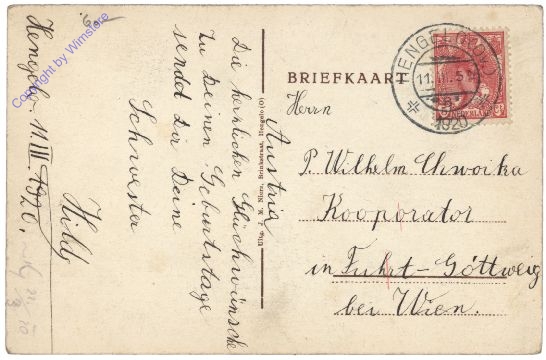 Hengelo 11 III. 1920.
Die herzlichen Glückwünsche
zu Deinem Geburtstage
sendet Dir Deine
Schwester
Hildy
Copyright by Wimstore
Uitg. J. M. Niers, Brinkstraat, Hengelo (O)
BRIEFKAART
HENGELO (OV.)
11.III.5
1920
NEDERLAND
Herrn
P. Wilhelm Chwoika
Kooporator
in Fuhrt - Göttweig
bei Wien.
Austria